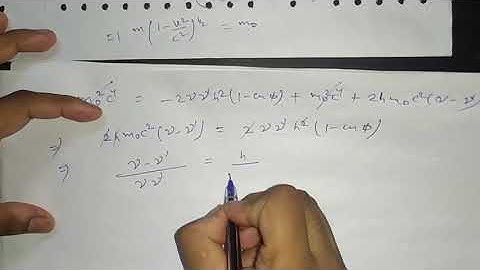 ⇒ m(1-v²/c²)^½ = m₀
m₀²c⁴ = -2νν'h²(1-cosϕ) + m₀²c⁴ + 2hm₀c²(ν-ν')
⇒ 2hm₀c²(ν-ν') = 2νν'h²(1-cosϕ)
⇒ (ν-ν')/(νν') = h/